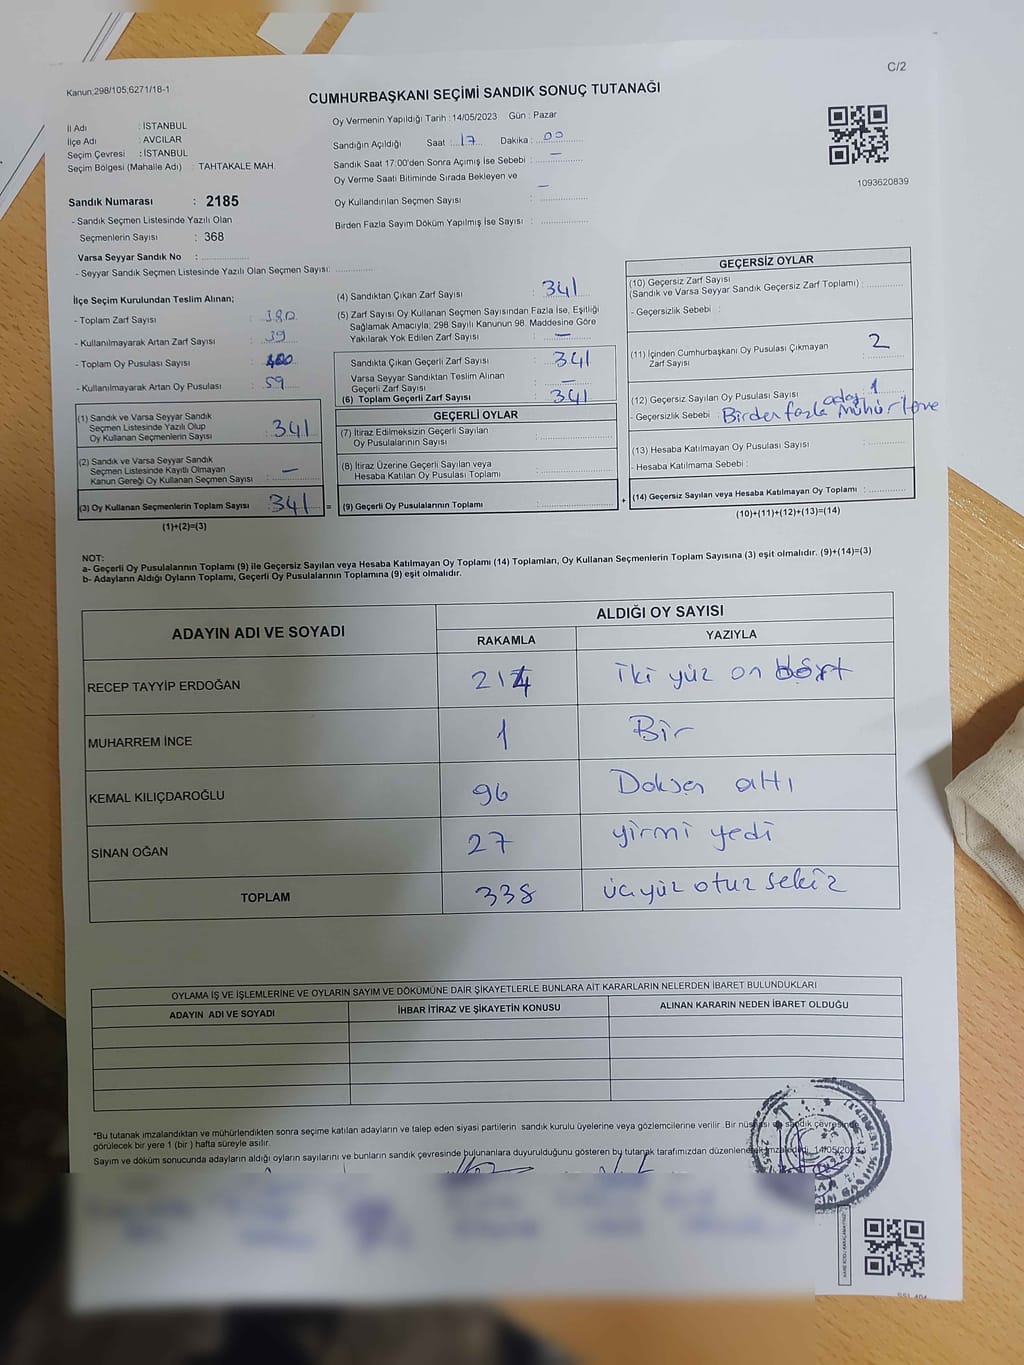 C/2
Kanun;298/105;6271/18-1
CUMHURBAŞKANI SEÇİMİ SANDIK SONUÇ TUTANAĞI
İl Adı : İSTANBUL
İlçe Adı : AVCILAR
Seçim Çevresi : İSTANBUL
Seçim Bölgesi (Mahalle Adı) : TAHTAKALE MAH.
Oy Vermenin Yapıldığı Tarih : 14/05/2023 Gün : Pazar
Sandığın Açıldığı Saat : 17 Dakika : 00
Sandık Saat 17:00'den Sonra Açımış İse Sebebi : —
Oy Verme Saati Bitiminde Sırada Bekleyen ve
Oy Kullandırılan Seçmen Sayısı : —
Birden Fazla Sayım Döküm Yapılmış İse Sayısı :
1093620839
Sandık Numarası : 2185
- Sandık Seçmen Listesinde Yazılı Olan
Seçmenlerin Sayısı : 368
Varsa Seyyar Sandık No :
- Seyyar Sandık Seçmen Listesinde Yazılı Olan Seçmen Sayısı:
İlçe Seçim Kurulundan Teslim Alınan;
- Toplam Zarf Sayısı : 380
- Kullanılmayarak Artan Zarf Sayısı : 39
- Toplam Oy Pusulası Sayısı : 400
- Kullanılmayarak Artan Oy Pusulası : 59
(1) Sandık ve Varsa Seyyar Sandık
Seçmen Listesinde Yazılı Olup
Oy Kullanan Seçmenlerin Sayısı : 341
(2) Sandık ve Varsa Seyyar Sandık
Seçmen Listesinde Kayıtlı Olmayan
Kanun Gereği Oy Kullanan Seçmen Sayısı : —
(3) Oy Kullanan Seçmenlerin Toplam Sayısı : 341 =
(1)+(2)=(3)
(4) Sandıktan Çıkan Zarf Sayısı : 341
(5) Zarf Sayısı Oy Kullanan Seçmen Sayısından Fazla İse, Eşitliği
Sağlamak Amacıyla; 298 Sayılı Kanunun 98. Maddesine Göre
Yakılarak Yok Edilen Zarf Sayısı : —
Sandıkta Çıkan Geçerli Zarf Sayısı : 341
Varsa Seyyar Sandıktan Teslim Alınan
Geçerli Zarf Sayısı : —
(6) Toplam Geçerli Zarf Sayısı : 341
GEÇERLİ OYLAR
(7) İtiraz Edilmeksizin Geçerli Sayılan
Oy Pusulalarının Sayısı :
(8) İtiraz Üzerine Geçerli Sayılan veya
Hesaba Katılan Oy Pusulası Toplamı :
(9) Geçerli Oy Pusulalarının Toplamı : +
GEÇERSİZ OYLAR
(10) Geçersiz Zarf Sayısı
(Sandık ve Varsa Seyyar Sandık Geçersiz Zarf Toplamı) :
- Geçersizlik Sebebi :
(11) İçinden Cumhurbaşkanı Oy Pusulası Çıkmayan
Zarf Sayısı : 2
(12) Geçersiz Sayılan Oy Pusulası Sayısı : 1
- Geçersizlik Sebebi : Birden fazla aday mühürleme
(13) Hesaba Katılmayan Oy Pusulası Sayısı :
- Hesaba Katılmama Sebebi :
(14) Geçersiz Sayılan veya Hesaba Katılmayan Oy Toplamı :
(10)+(11)+(12)+(13)=(14)
NOT:
a- Geçerli Oy Pusulalarının Toplamı (9) ile Geçersiz Sayılan veya Hesaba Katılmayan Oy Toplamı (14) Toplamları, Oy Kullanan Seçmenlerin Toplam Sayısına (3) eşit olmalıdır. (9)+(14)=(3)
b- Adayların Aldığı Oyların Toplamı, Geçerli Oy Pusulalarının Toplamına (9) eşit olmalıdır.
ADAYIN ADI VE SOYADI ALDIĞI OY SAYISI
RAKAMLA YAZIYLA
RECEP TAYYİP ERDOĞAN 214 iki yüz on dört
MUHARREM İNCE 1 Bir
KEMAL KILIÇDAROĞLU 96 Doksan altı
SİNAN OĞAN 27 yirmi yedi
TOPLAM 338 üçyüz otuz sekiz
OYLAMA İŞ VE İŞLEMLERİNE VE OYLARIN SAYIM VE DÖKÜMÜNE DAİR ŞİKAYETLERLE BUNLARA AİT KARARLARIN NELERDEN İBARET BULUNDUKLARI
ADAYIN ADI VE SOYADI İHBAR İTİRAZ VE ŞİKAYETİN KONUSU ALINAN KARARIN NEDEN İBARET OLDUĞU
*Bu tutanak imzalandıktan ve mühürlendikten sonra seçime katılan adayların ve talep eden siyasi partilerin sandık kurulu üyelerine veya gözlemcilerine verilir. Bir nüshası da sandık çevresinde
görülecek bir yere 1 (bir ) hafta süreyle asılır.
Sayım ve döküm sonucunda adayların aldığı oyların sayılarını ve bunların sandık çevresinde bulunanlara duyurulduğunu gösteren bu tutanak tarafımızdan düzenlenerek imza edildi. 14/05/2023